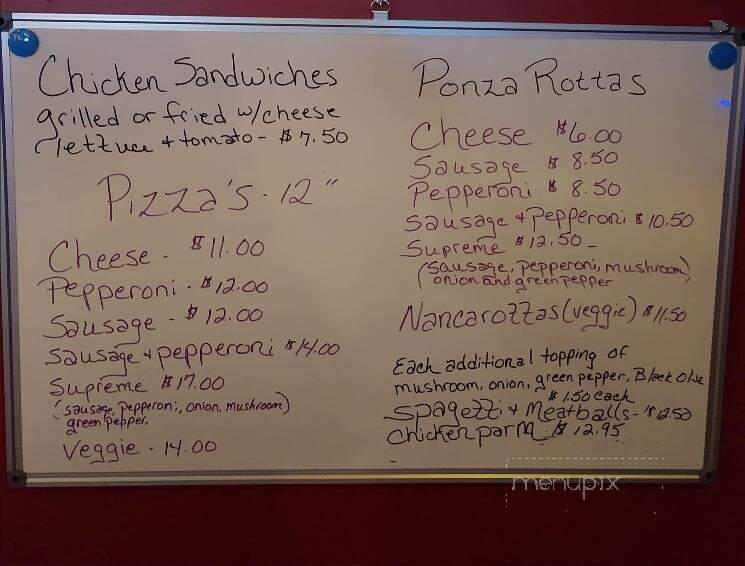 Chicken Sandwiches
grilled or fried w/cheese
lettuce + tomato - $7.50
Pizza's - 12"
Cheese - $11.00
Pepperoni - $12.00
Sausage - $12.00
Sausage + pepperoni $14.00
Supreme $17.00
(sausage, pepperoni, onion, mushroom)
green pepper,
Veggie - 14.00
Ponza Rottas
Cheese $6.00
Sausage $8.50
Pepperoni $8.50
Sausage + Pepperoni $10.50
Supreme $12.50 -
(sausage, pepperoni, mushroom)
onion and green pepper
Nancarozzas (veggie) $11.50
Each additional topping of
mushroom, onion, green pepper, Black Olive
$1.50 each
Spagezzi + Meatballs - $12.50
Chicken parm - $12.95
menupix